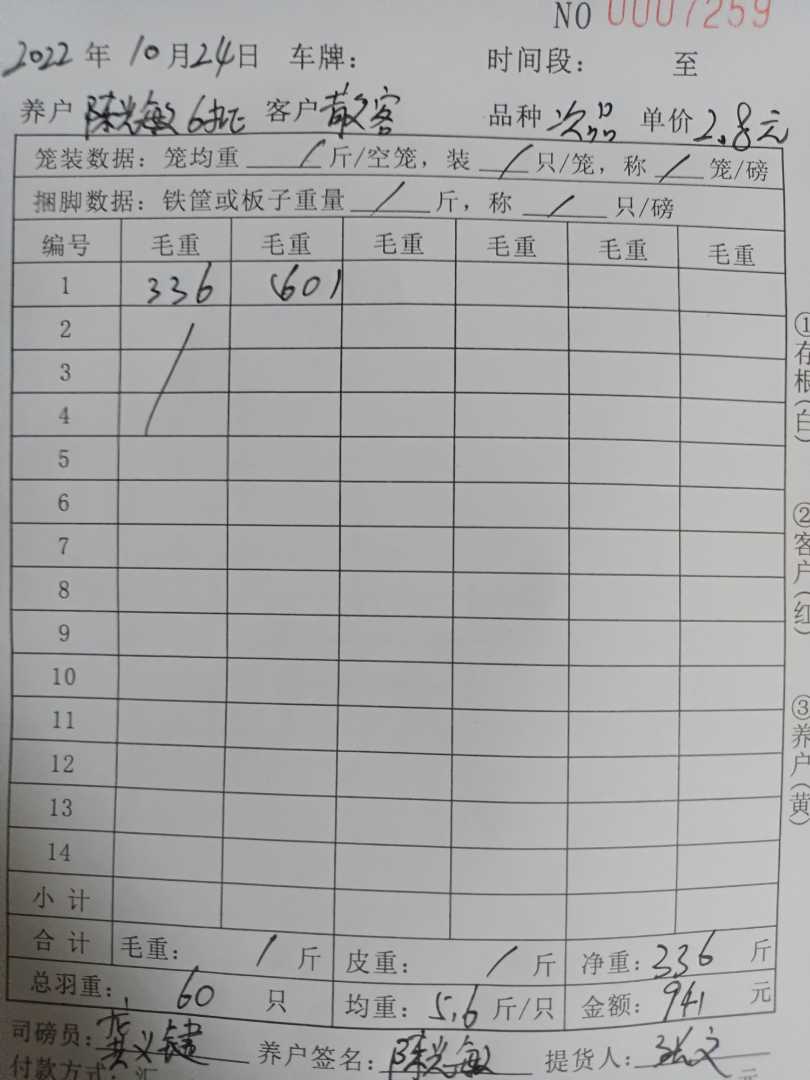 NO 0007259
2022 年 10 月 24 日 车牌： 时间段： 至
养户 陈光敏 6批 客户 散客 品种 次品 单价 2.8元
笼装数据：笼均重 / 斤/空笼，装 / 只/笼，称 / 笼/磅
捆脚数据：铁筐或板子重量 / 斤，称 / 只/磅
编号 毛重 毛重 毛重 毛重 毛重 毛重
1 336 (60)
2
3
4
5
6
7
8
9
10
11
12
13
14
小计
合计 毛重： / 斤 皮重： / 斤 净重：336 斤
总羽重： 60 只 均重：5.6 斤/只 金额：941 元
司磅员： 养户签名：陈光敏 提货人：张文
付款方式：汇 元
①存根(白) ②客户(红) ③养户(黄)